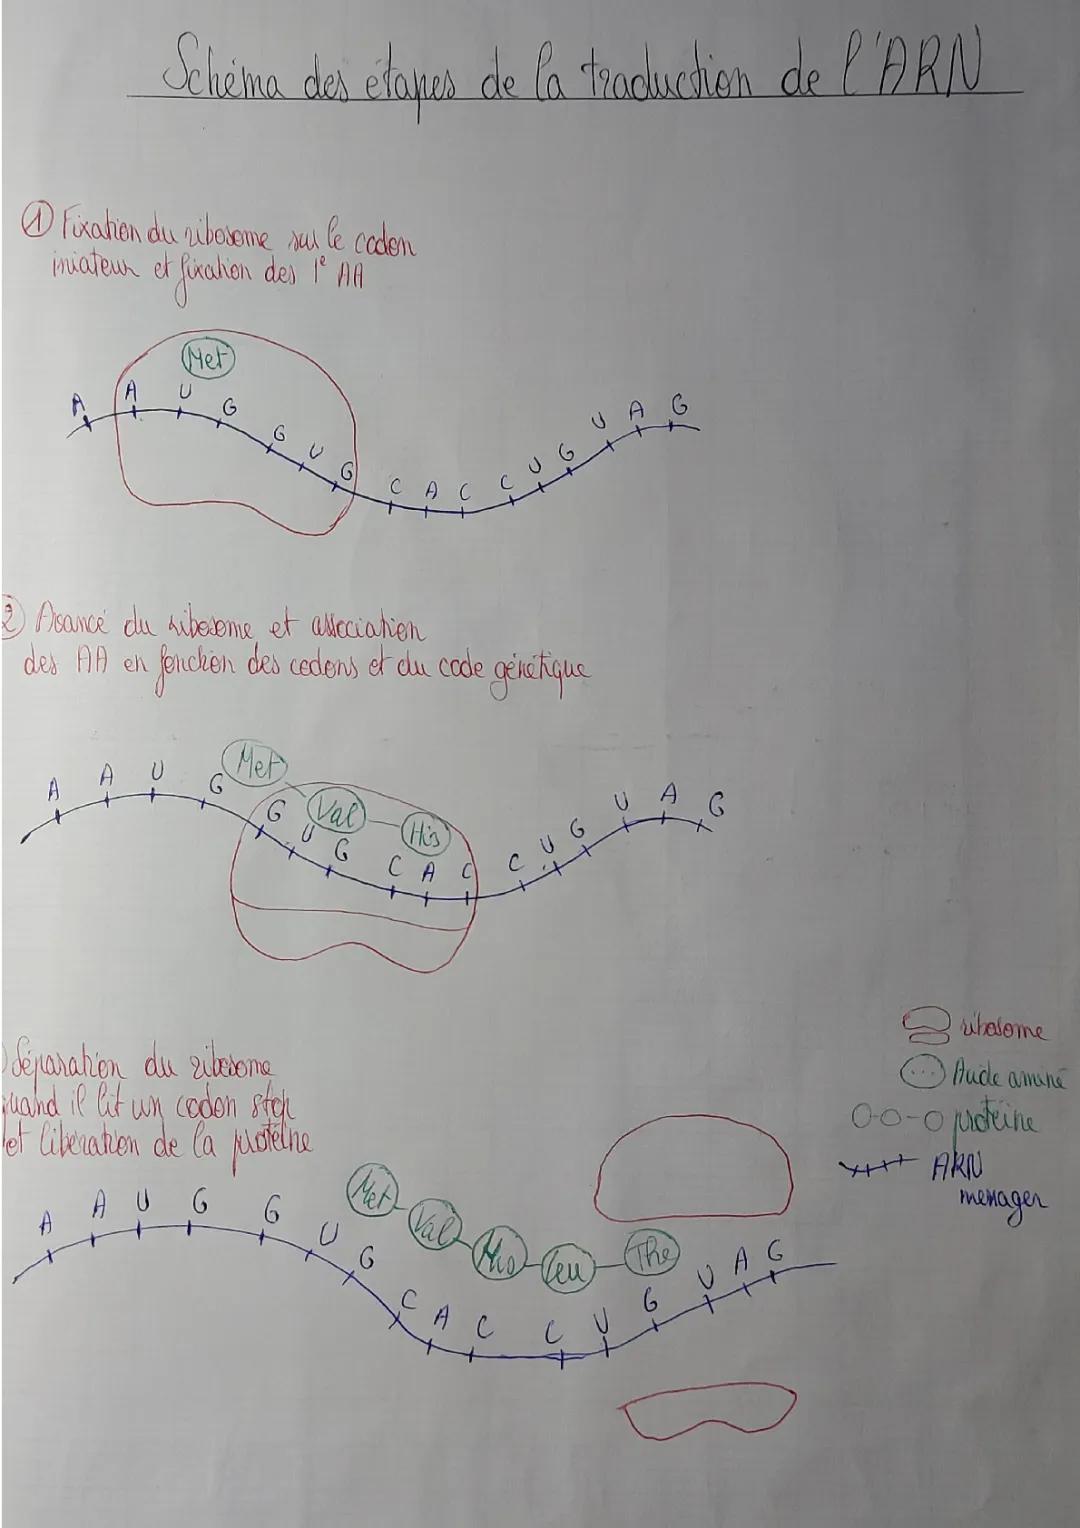 Schéma des étapes de la traduction de l'ARN
① Fixation du ribosome sur le codon
iniateur et fixation des 1e AA
Met
A A U G G U G C A C C U G U A G
2 Avancé du ribosome et association
des AA en fonction des codons et du code génétique
Met Val His
A A U G G U G C A C C U G U A G
ribosome
Acide aminé
protéine
ARN
messager
Séparation du ribosome
quand il lit un codon stop
et libération de la protéine
Met Val His Leu The
A A U G G U G C A C C U G U A G